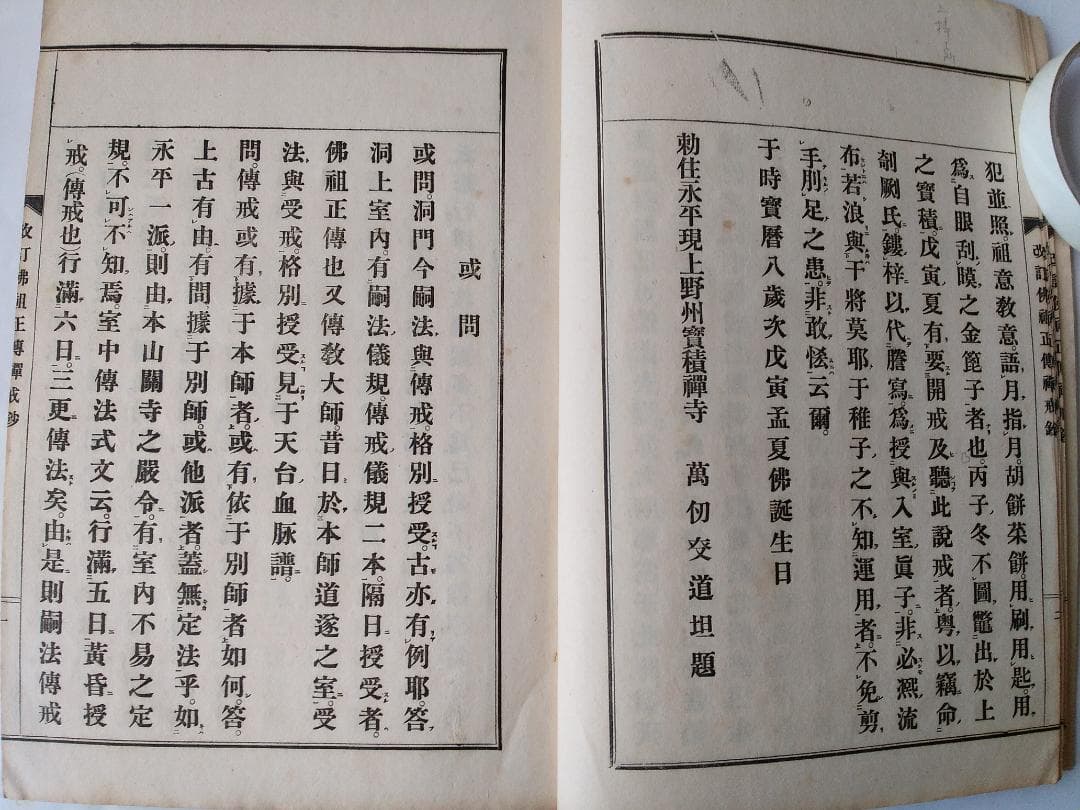 犯並照。祖意教意。語月指月。胡餅菜餅。用刷用匙。用
爲自眼刮瞙之金箆子者也。丙子冬不圖鼈出於上
之寶積。戊寅夏有要開戒及聽此說戒者。粤以竊命
剞劂氏鏤梓以代謄寫。爲授與入室眞子。非必凞流
布。若浪與干將莫耶于稚子之不知運用者。不免剪
手刖足之患。非敢恡云爾。
于時寶曆八歲次戊寅孟夏佛誕生日
勅住永平現上野州寶積禪寺 萬仞㝸道坦題
改訂佛祖正傳禪戒鈔
二
或問
或問。洞門今嗣法與傳戒。格別授受。古亦有例耶。答。
洞上室內。有嗣法儀規。傳戒儀規二本。隔日授受者。
佛祖正傳也又傳教大師。昔日於本師道邃之室。受
法與受戒。格別授受見于天台血脉譜。
問。傳戒或有據于本師者。或有依于別師者如何。答。
上古有由有間據于別師。或他派者。蓋無定法乎。如
永平一派。則由本山關寺之嚴令。有室內不易之定
規。不可不知焉。室中傳法式文云。行滿五日黃昏授
戒。(傳戒也)行滿六日。三更傳法矣。由是則嗣法傳戒
改訂佛祖正傳禪戒鈔
一